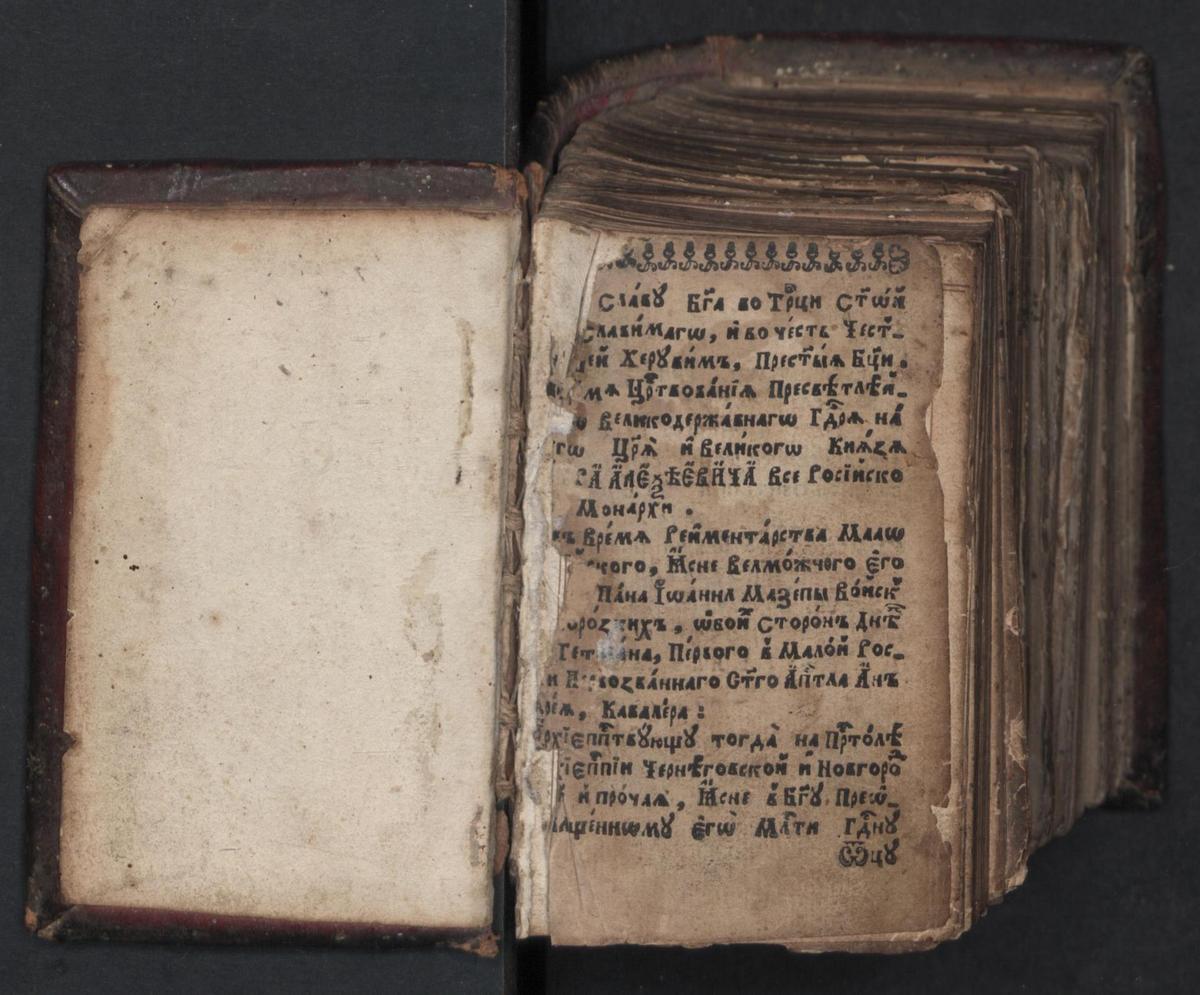 славꙋ Бг҃а во Трⷪ҇ци Ст҃ѡ́й
славимагѡ, и во че́сть Чест-
ей Херꙋви́мъ, Прест҃ы́ѧ Бц҃и.
мѧ Црⷭ҇твова́нїѧ Пресвѣтлѣй-
Великодержа́внагѡ Гдⷭ҇рѧ на́
гѡ Црѧ̀ и Вели́когѡ Кнѧ́ꙁѧ
АЛЕѮѢЕВИЧА Все Росі́йско
Мона́рхи.
Вре́мѧ Рейментарства Малѡ
ского, Ꙗ҆сне Велмо́жного Е҆го
Па́на І҆ѡа́нна Мазе́пы Во́йскъ
ро́ꙁкихъ, ѡ҆бои́ Сторо́нъ Днѣ
Гетма́на, Пе́рвого в Мало́й Рос-
и Первоꙁва́ннаго Ст҃го Апⷭ҇тла Ан
ре́ѧ, Кавале́ра:
рхїепⷭ҇птвꙋ́ющꙋ тогда̀ на Прⷭ҇то́лѣ
їепⷭ҇пїи Чернѣговской и Новгоро
и про́чаѧ, Ꙗ҆сне в Бг҃ꙋ Преѡ-
ще́нномꙋ Е҆гѡ̀ Млⷭ҇ти Гдⷭ҇нꙋ
Ѿцꙋ